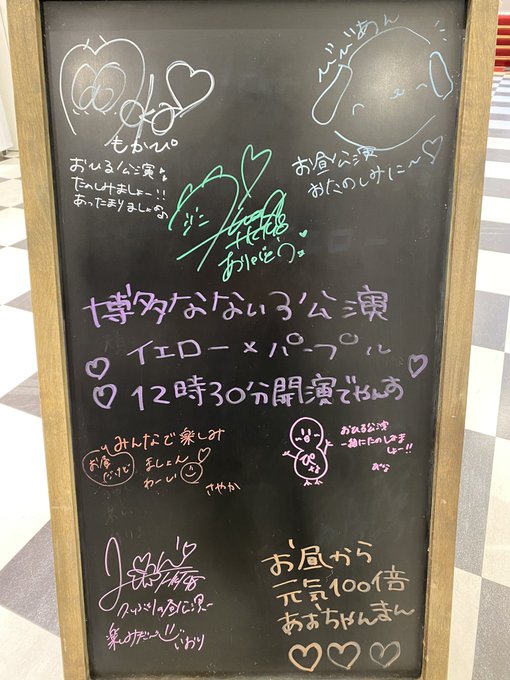 もかぴ
おひる公演
たのしみましょー!!
あったまりましょ
びびあん
お昼公演
おたのしみに〜♡
ありがとう
博多なないろ公演
イエロー×パープル
♡ 12時30分開演でやんす
みんなで楽しみ
ましょん
わーい
お昼
だけど
さやか
おひる公演
一緒にたのしみま
しょー!!
ぴよ
の昼公演〜
楽しみだ〜!!
いおり
お昼から
元気100倍
あおちゃんまん
♡♡♡